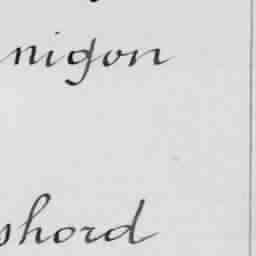 nigon
shord